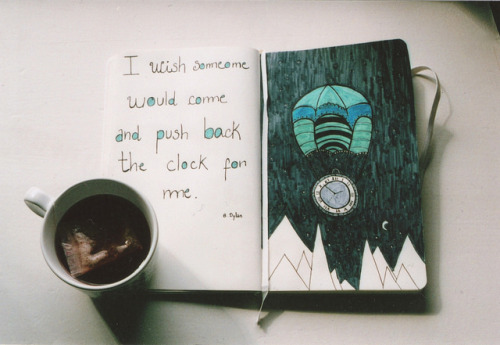 I wish someone
would come
and push back
the clock for
me.
B. Dylan